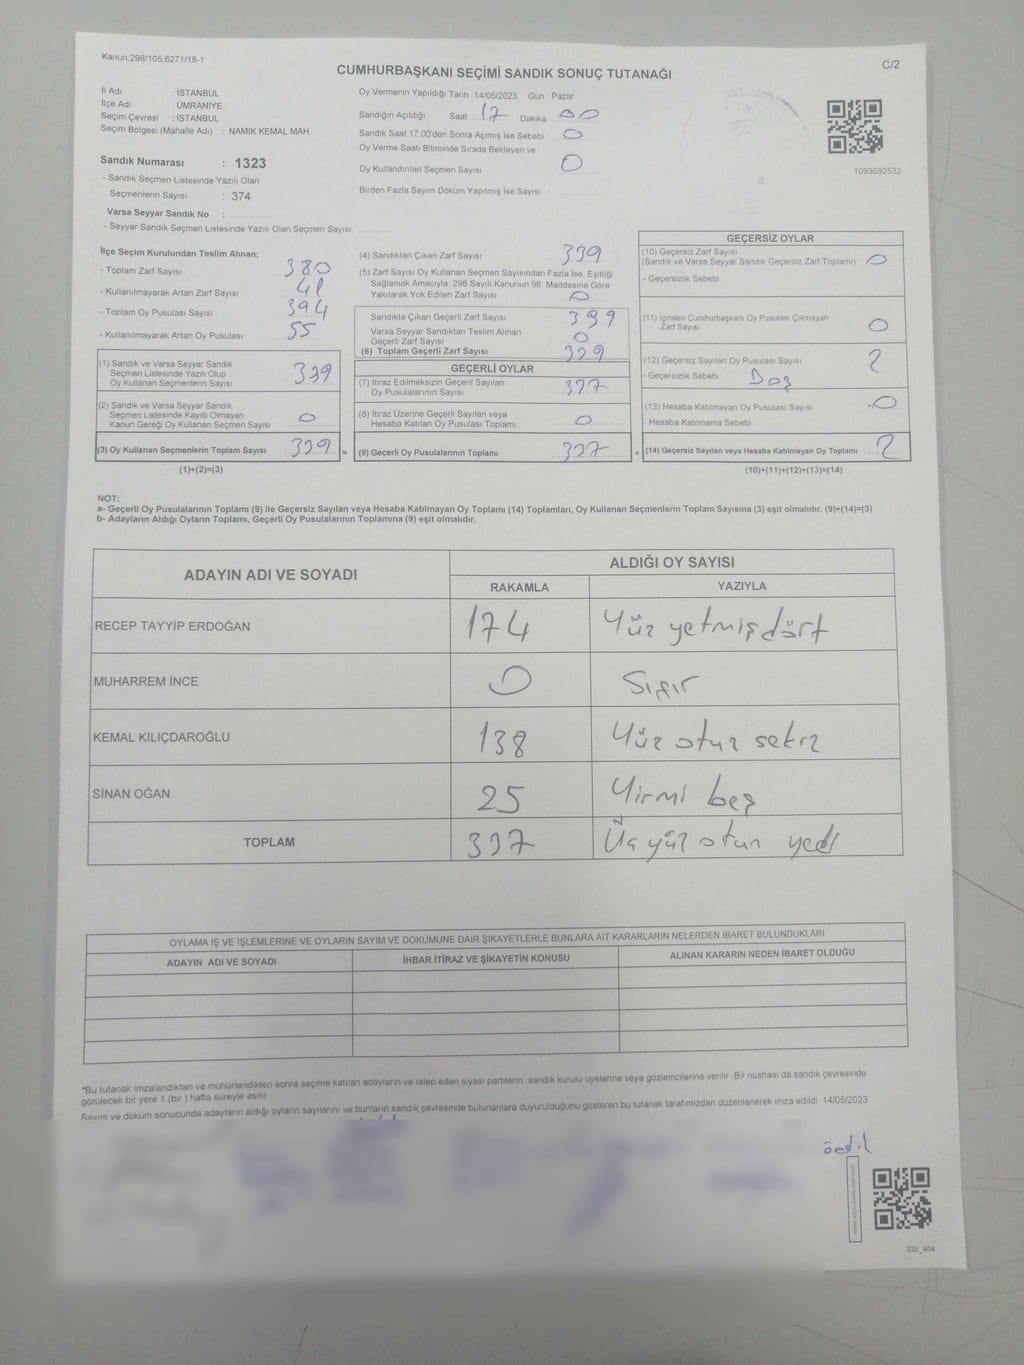 Kanun:298/105;6271/18-1
C/2
CUMHURBAŞKANI SEÇİMİ SANDIK SONUÇ TUTANAĞI
İl Adı : İSTANBUL
İlçe Adı : ÜMRANİYE
Seçim Çevresi : İSTANBUL
Seçim Bölgesi (Mahalle Adı) : NAMIK KEMAL MAH.
Sandık Numarası : 1323
- Sandık Seçmen Listesinde Yazılı Olan
Seçmenlerin Sayısı : 374
Varsa Seyyar Sandık No :
- Seyyar Sandık Seçmen Listesinde Yazılı Olan Seçmen Sayısı:
Oy Vermenin Yapıldığı Tarih :14/05/2023 Gün : Pazar
Sandığın Açıldığı Saat 17 Dakika 00
Sandık Saat 17:00'den Sonra Açımış İse Sebebi 0
Oy Verme Saati Bitiminde Sırada Bekleyen ve
Oy Kullandırılan Seçmen Sayısı 0
Birden Fazla Sayım Döküm Yapılmış İse Sayısı
1093692532
İlçe Seçim Kurulundan Teslim Alınan;
- Toplam Zarf Sayısı 380
- Kullanılmayarak Artan Zarf Sayısı 41
- Toplam Oy Pusulası Sayısı 394
- Kullanılmayarak Artan Oy Pusulası 55
(1) Sandık ve Varsa Seyyar Sandık
Seçmen Listesinde Yazılı Olup
Oy Kullanan Seçmenlerin Sayısı 339
(2) Sandık ve Varsa Seyyar Sandık
Seçmen Listesinde Kayıtlı Olmayan
Kanun Gereği Oy Kullanan Seçmen Sayısı 0
(3) Oy Kullanan Seçmenlerin Toplam Sayısı 339 =
(1)+(2)=(3)
(4) Sandıktan Çıkan Zarf Sayısı 339
(5) Zarf Sayısı Oy Kullanan Seçmen Sayısından Fazla İse, Eşitliği
Sağlamak Amacıyla, 298 Sayılı Kanunun 98. Maddesine Göre
Yakılarak Yok Edilen Zarf Sayısı 0
Sandıkta Çıkan Geçerli Zarf Sayısı 339
Varsa Seyyar Sandıktan Teslim Alınan
Geçerli Zarf Sayısı 0
(6) Toplam Geçerli Zarf Sayısı 339
GEÇERLİ OYLAR
(7) İtiraz Edilmeksizin Geçerli Sayılan
Oy Pusulalarının Sayısı 337
(8) İtiraz Üzerine Geçerli Sayılan veya
Hesaba Katılan Oy Pusulası Toplamı 0
(9) Geçerli Oy Pusulalarının Toplamı 337 +
GEÇERSİZ OYLAR
(10) Geçersiz Zarf Sayısı
(Sandık ve Varsa Seyyar Sandık Geçersiz Zarf Toplamı) 0
- Geçersizlik Sebebi
(11) İçinden Cumhurbaşkanı Oy Pusulası Çıkmayan
Zarf Sayısı 0
(12) Geçersiz Sayılan Oy Pusulası Sayısı 2
- Geçersizlik Sebebi Boş
(13) Hesaba Katılmayan Oy Pusulası Sayısı 0
- Hesaba Katılmama Sebebi
(14) Geçersiz Sayılan veya Hesaba Katılmayan Oy Toplamı 2
(10)+(11)+(12)+(13)=(14)
NOT:
a- Geçerli Oy Pusulalarının Toplamı (9) ile Geçersiz Sayılan veya Hesaba Katılmayan Oy Toplamı (14) Toplamları, Oy Kullanan Seçmenlerin Toplam Sayısına (3) eşit olmalıdır. (9)+(14)=(3)
b- Adayların Aldığı Oyların Toplamı, Geçerli Oy Pusulalarının Toplamına (9) eşit olmalıdır.
ADAYIN ADI VE SOYADI
ALDIĞI OY SAYISI
RAKAMLA YAZIYLA
RECEP TAYYİP ERDOĞAN 174 Yüz yetmiş dört
MUHARREM İNCE 0 Sıfır
KEMAL KILIÇDAROĞLU 138 Yüz otuz sekiz
SİNAN OĞAN 25 Yirmi beş
TOPLAM 337 Üç yüz otuz yedi
OYLAMA İŞ VE İŞLEMLERİNE VE OYLARIN SAYIM VE DÖKÜMÜNE DAİR ŞİKAYETLERLE BUNLARA AİT KARARLARIN NELERDEN İBARET BULUNDUKLARI
ADAYIN ADI VE SOYADI İHBAR İTİRAZ VE ŞİKAYETİN KONUSU ALINAN KARARIN NEDEN İBARET OLDUĞU
*Bu tutanak imzalandıktan ve mühürlendikten sonra seçime katılan adayların ve talep eden siyasi partilerin sandık kurulu üyelerine veya gözlemcilerine verilir. Bir nüshası da sandık çevresinde
görülecek bir yere 1 (bir) hafta süreyle asılır.
Sayım ve döküm sonucunda adayların aldığı oyların sayılarını ve bunların sandık çevresinde bulunanlara duyurulduğunu gösteren bu tutanak tarafımızdan düzenlenerek imza edildi. 14/05/2023
SSI_404